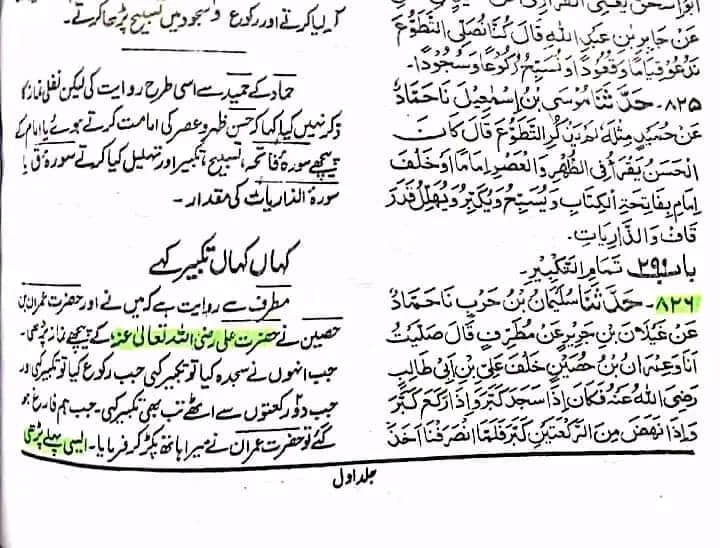 عَنْ جَابِرِ بْنِ عَبْدِ اللّٰهِ قَالَ كُنَّا نُصَلِّي التَّطَوُّعَ
نَدْعُوْ قِيَامًا وَقُعُوْدًا وَنُسَبِّحُ رُكُوْعًا وَسُجُوْدًا۔
۸۲۵۔ حَدَّثَنَا مُوْسَى بْنُ إِسْمٰعِيْلَ نَا حَمَّادٌ
عَنْ حُمَيْدٍ مِثْلَهٗ لَمْ يَذْكُرِ التَّطَوُّعَ قَالَ كَانَ
الْحَسَنُ يَقْرَأُ فِي الظُّهْرِ وَالْعَصْرِ إِمَامًا اَوْ خَلْفَ
إِمَامٍ بِفَاتِحَةِ الْكِتَابِ وَيُسَبِّحُ وَيُكَبِّرُ وَيُهَلِّلُ قَدْرَ
قَافْ وَالذَّارِيَاتِ۔
باب ۲۹۰ تَمَامِ التَّكْبِيْرِ۔
۸۲۶۔ حَدَّثَنَا سُلَيْمَانُ بْنُ حَرْبٍ نَا حَمَّادٌ
عَنْ غَيْلَانَ بْنِ جَرِيْرٍ عَنْ مُطَرِّفٍ قَالَ صَلَّيْتُ
اَنَا وَعِمْرَانُ بْنُ حُصَيْنٍ خَلْفَ عَلِيِّ بْنِ اَبِيْ طَالِبٍ
رَضِيَ اللّٰهُ عَنْهُ فَكَانَ إِذَا سَجَدَ كَبَّرَ وَإِذَا رَكَعَ كَبَّرَ
وَإِذَا نَهَضَ مِنَ الرَّكْعَتَيْنِ كَبَّرَ فَلَمَّا انْصَرَفْنَا اَخَذَ
کرتے اور رکوع و سجود میں تسبیح پڑھا کرتے۔
حماد کے حمید سے اسی طرح روایت کی لیکن نفلی نماز کا
ذکر نہیں کیا کہا کہ حسن ظہر و عصر کی امامت کرتے ہوئے یا امام کے
پیچھے سورۂ فاتحہ، تسبیح، تکبیر اور تہلیل کیا کرتے سورۂ ق یا
سورۂ الذاریات کی مقدار۔
کہاں کہاں تکبیر کہے
مطرف سے روایت ہے کہ میں نے اور حضرت عمران بن
حصین نے حضرت علی رضی اللہ تعالیٰ عنہ کے پیچھے نماز پڑھی۔
جب انہوں نے سجدہ کیا تو تکبیر کہی جب رکوع کیا تو تکبیر کہی اور
جب دو رکعتوں سے اٹھے تب بھی تکبیر کہی۔ جب ہم فارغ ہو
گئے تو حضرت عمران نے میرا ہاتھ پکڑ کر فرمایا۔ ایسی پہلے پڑھی
جلد اول